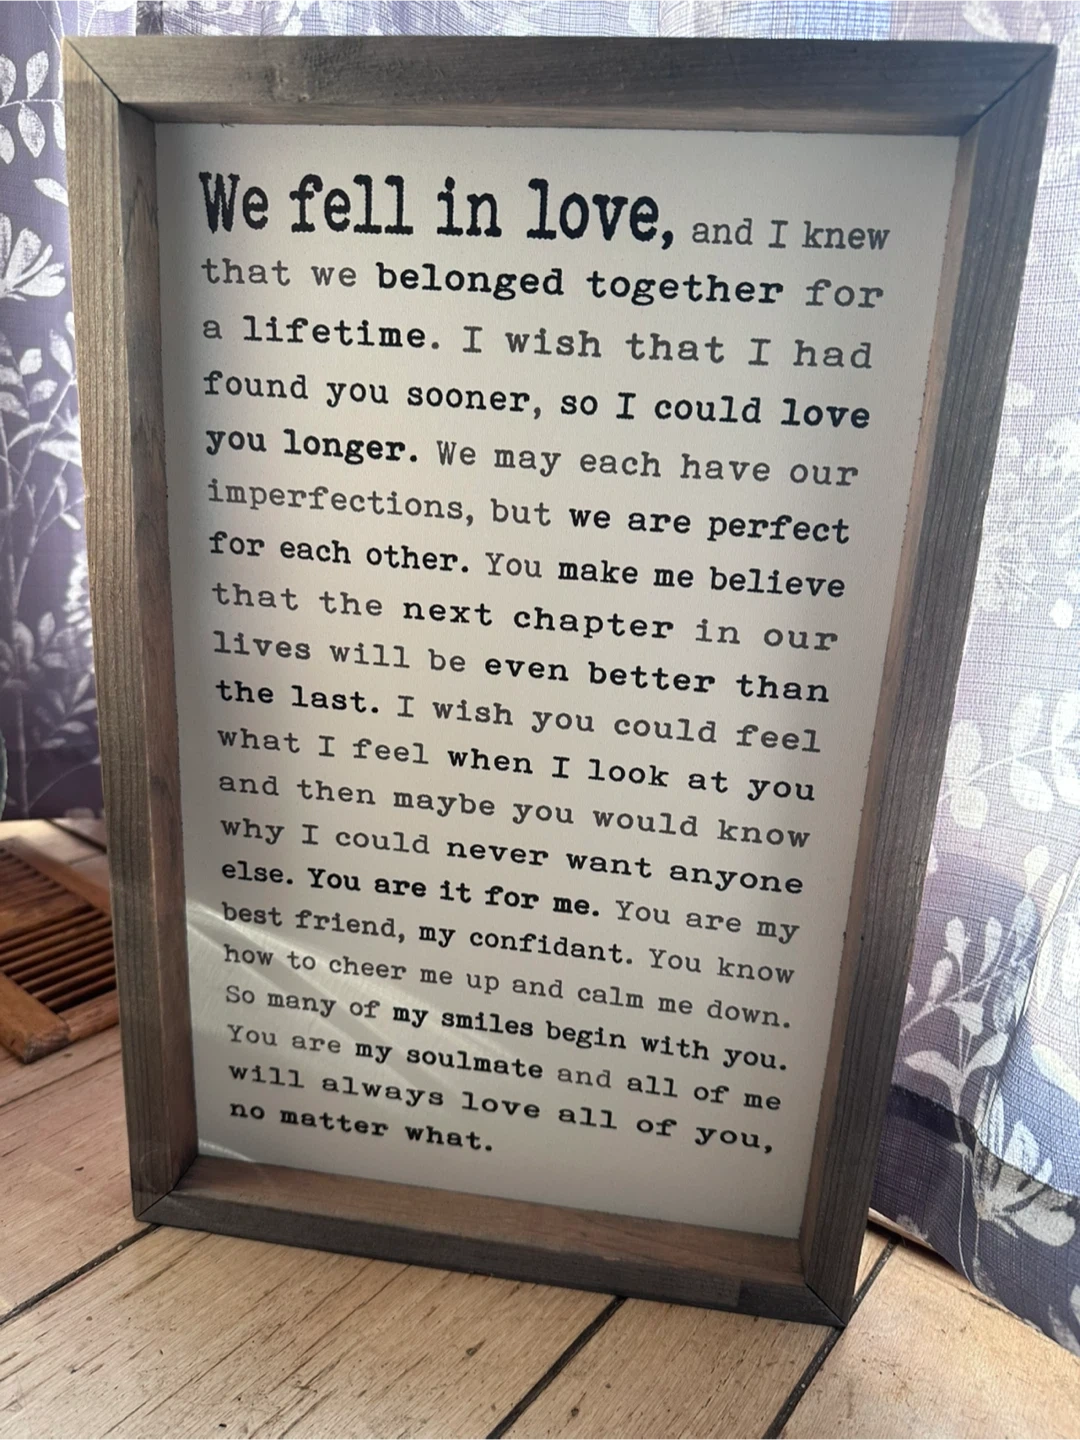 We fell in love, and I knew
that we belonged together for
a lifetime. I wish that I had
found you sooner, so I could love
you longer. We may each have our
imperfections, but we are perfect
for each other. You make me believe
that the next chapter in our
lives will be even better than
the last. I wish you could feel
what I feel when I look at you
and then maybe you would know
why I could never want anyone
else. You are it for me. You are my
best friend, my confidant. You know
how to cheer me up and calm me down.
So many of my smiles begin with you.
You are my soulmate and all of me
will always love all of you,
no matter what.